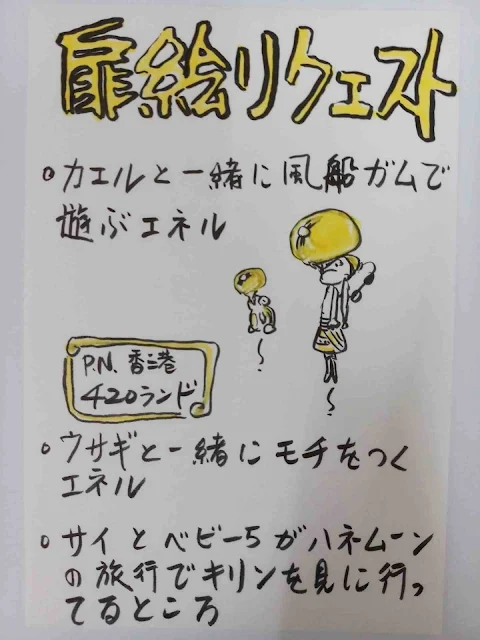 扉絵リクエスト
カエルと一緒に風船ガムで
遊ぶエネル
P.N. 香港
420ランド
ウサギと一緒にモチをつく
エネル
サイとベビー5がハネムーン
の旅行でキリンを見に行っ
てるところ